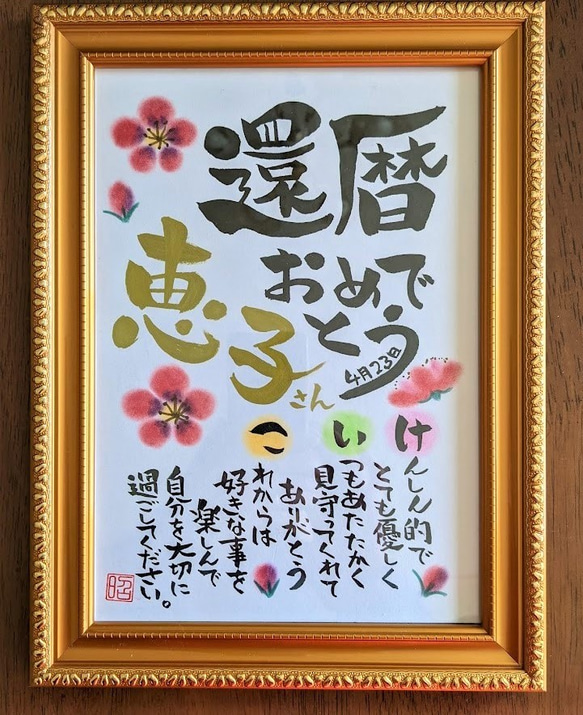 還暦
おめで
とう
4月23日
恵子
さん
けんしん的で
とても優しく
いつもあたたかく
見守ってくれて
ありがとう
これからは
好きな事を
楽しんで
自分を大切に
過ごしてください。
昭